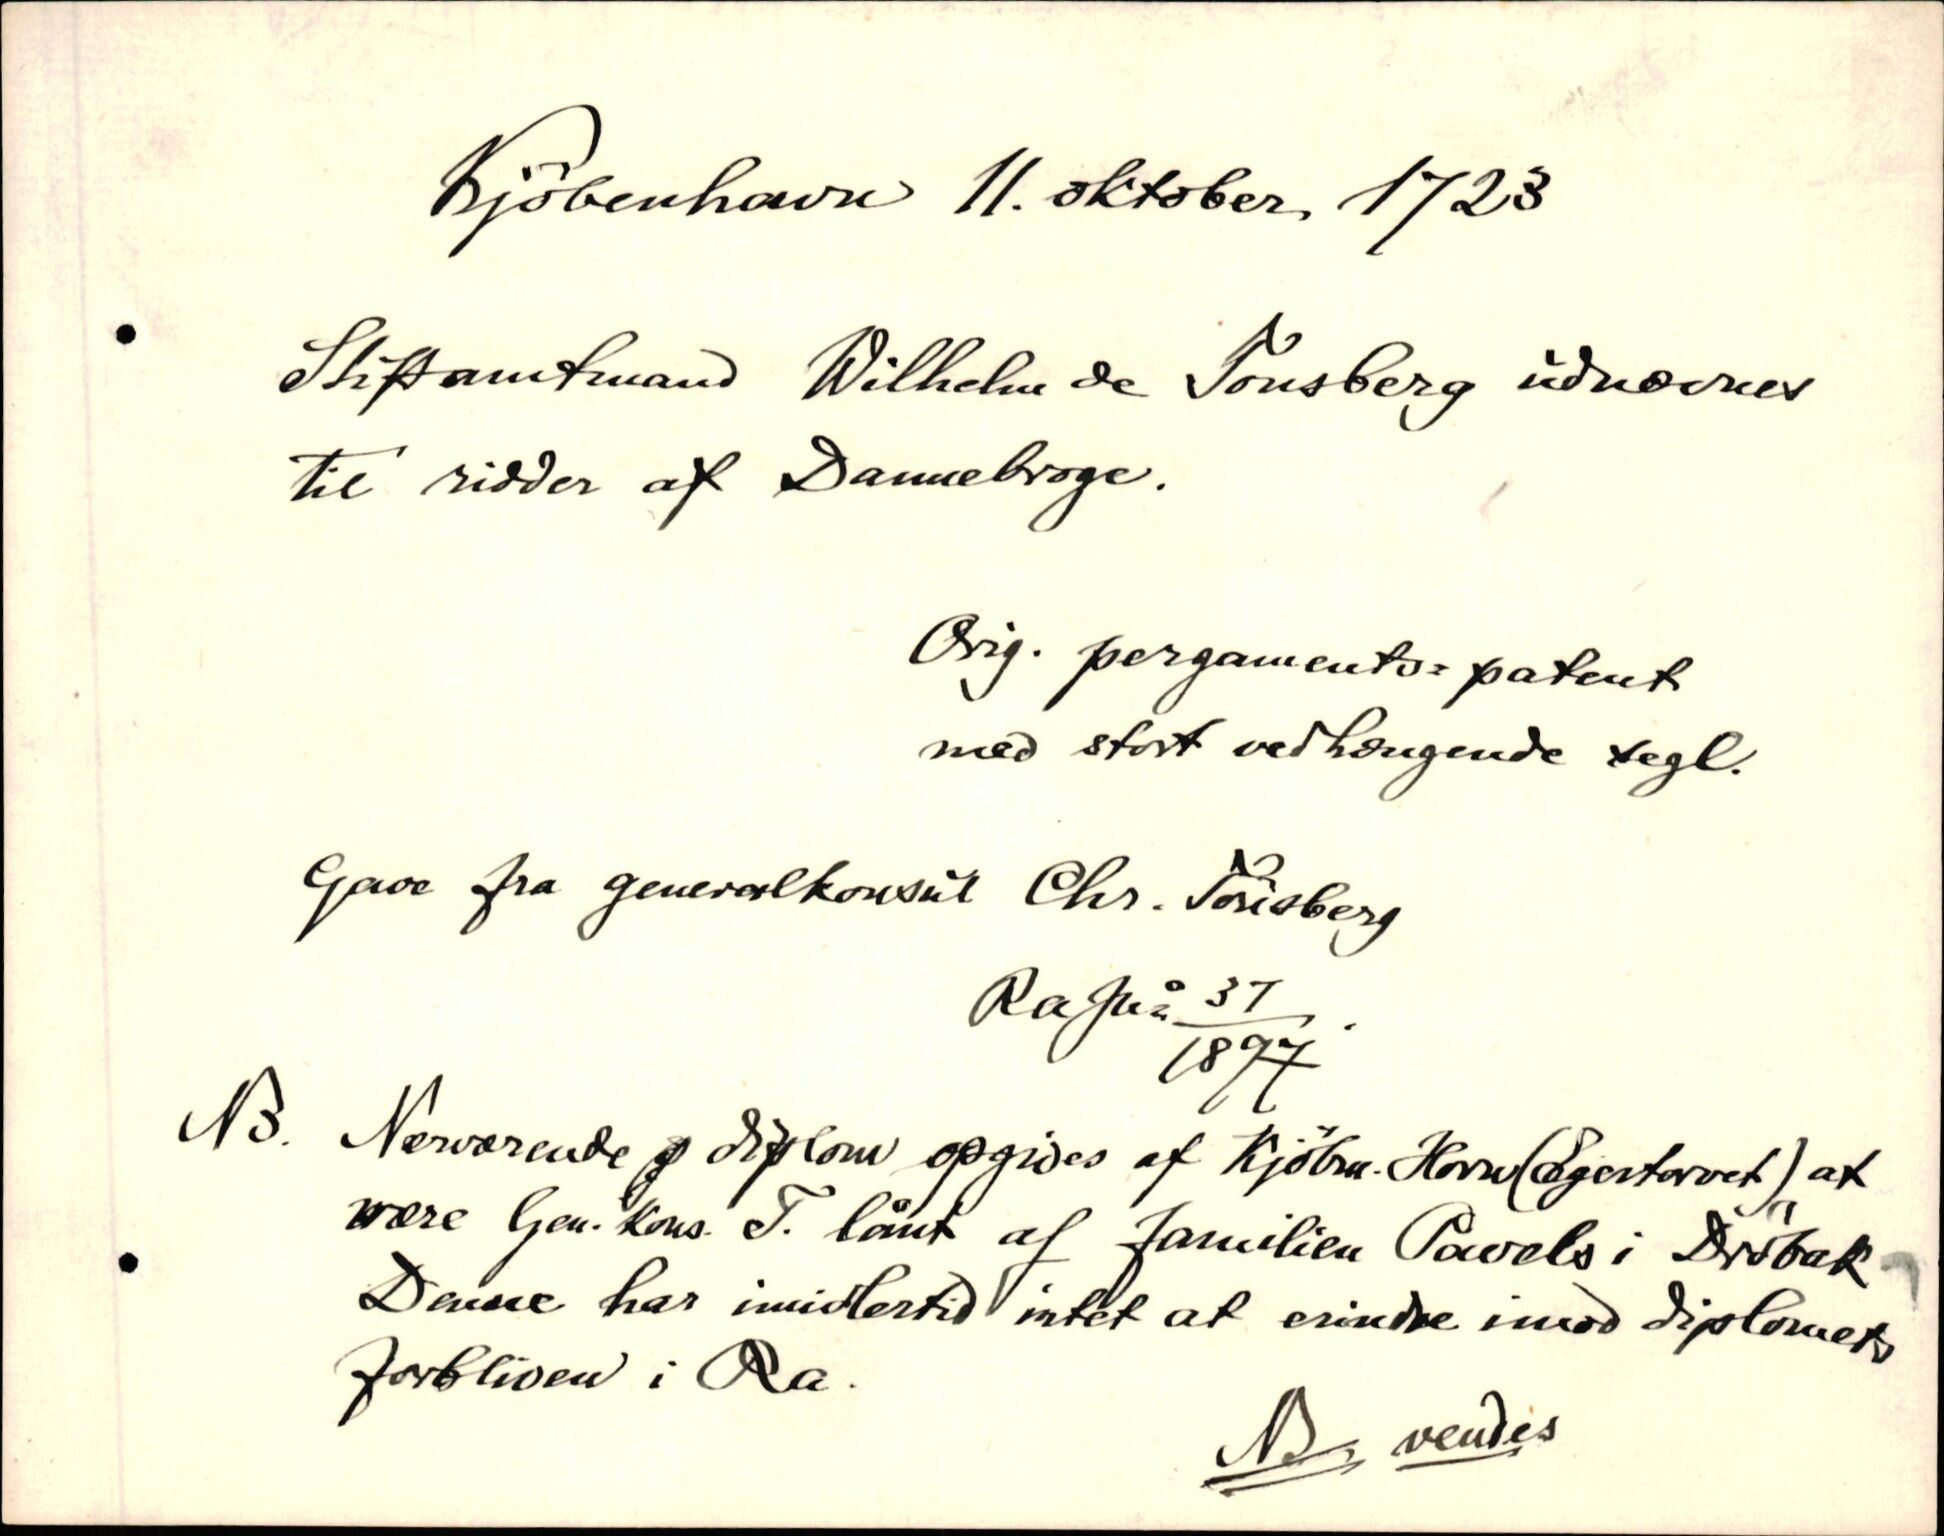 Kjöbenhavn 11. oktober 1723
Stiftamtmand Wilhelm de Tonsberg udnævnes
til ridder af Dannebroge.
Orig. pergaments=patent
med stort vedhængende segl.
Gave fra generalkonsul Chr. Tönsberg
Ra 37
1897.
NB. Nærværende diplom opgives af Kjöbm. Horn (Egertorvet) at
være Gen. kons. T. lånt af familien Pavels i Dröbak
Denne har imidlertid intet at erindre imod diplomets
forbliven i Ra.
NB vendes